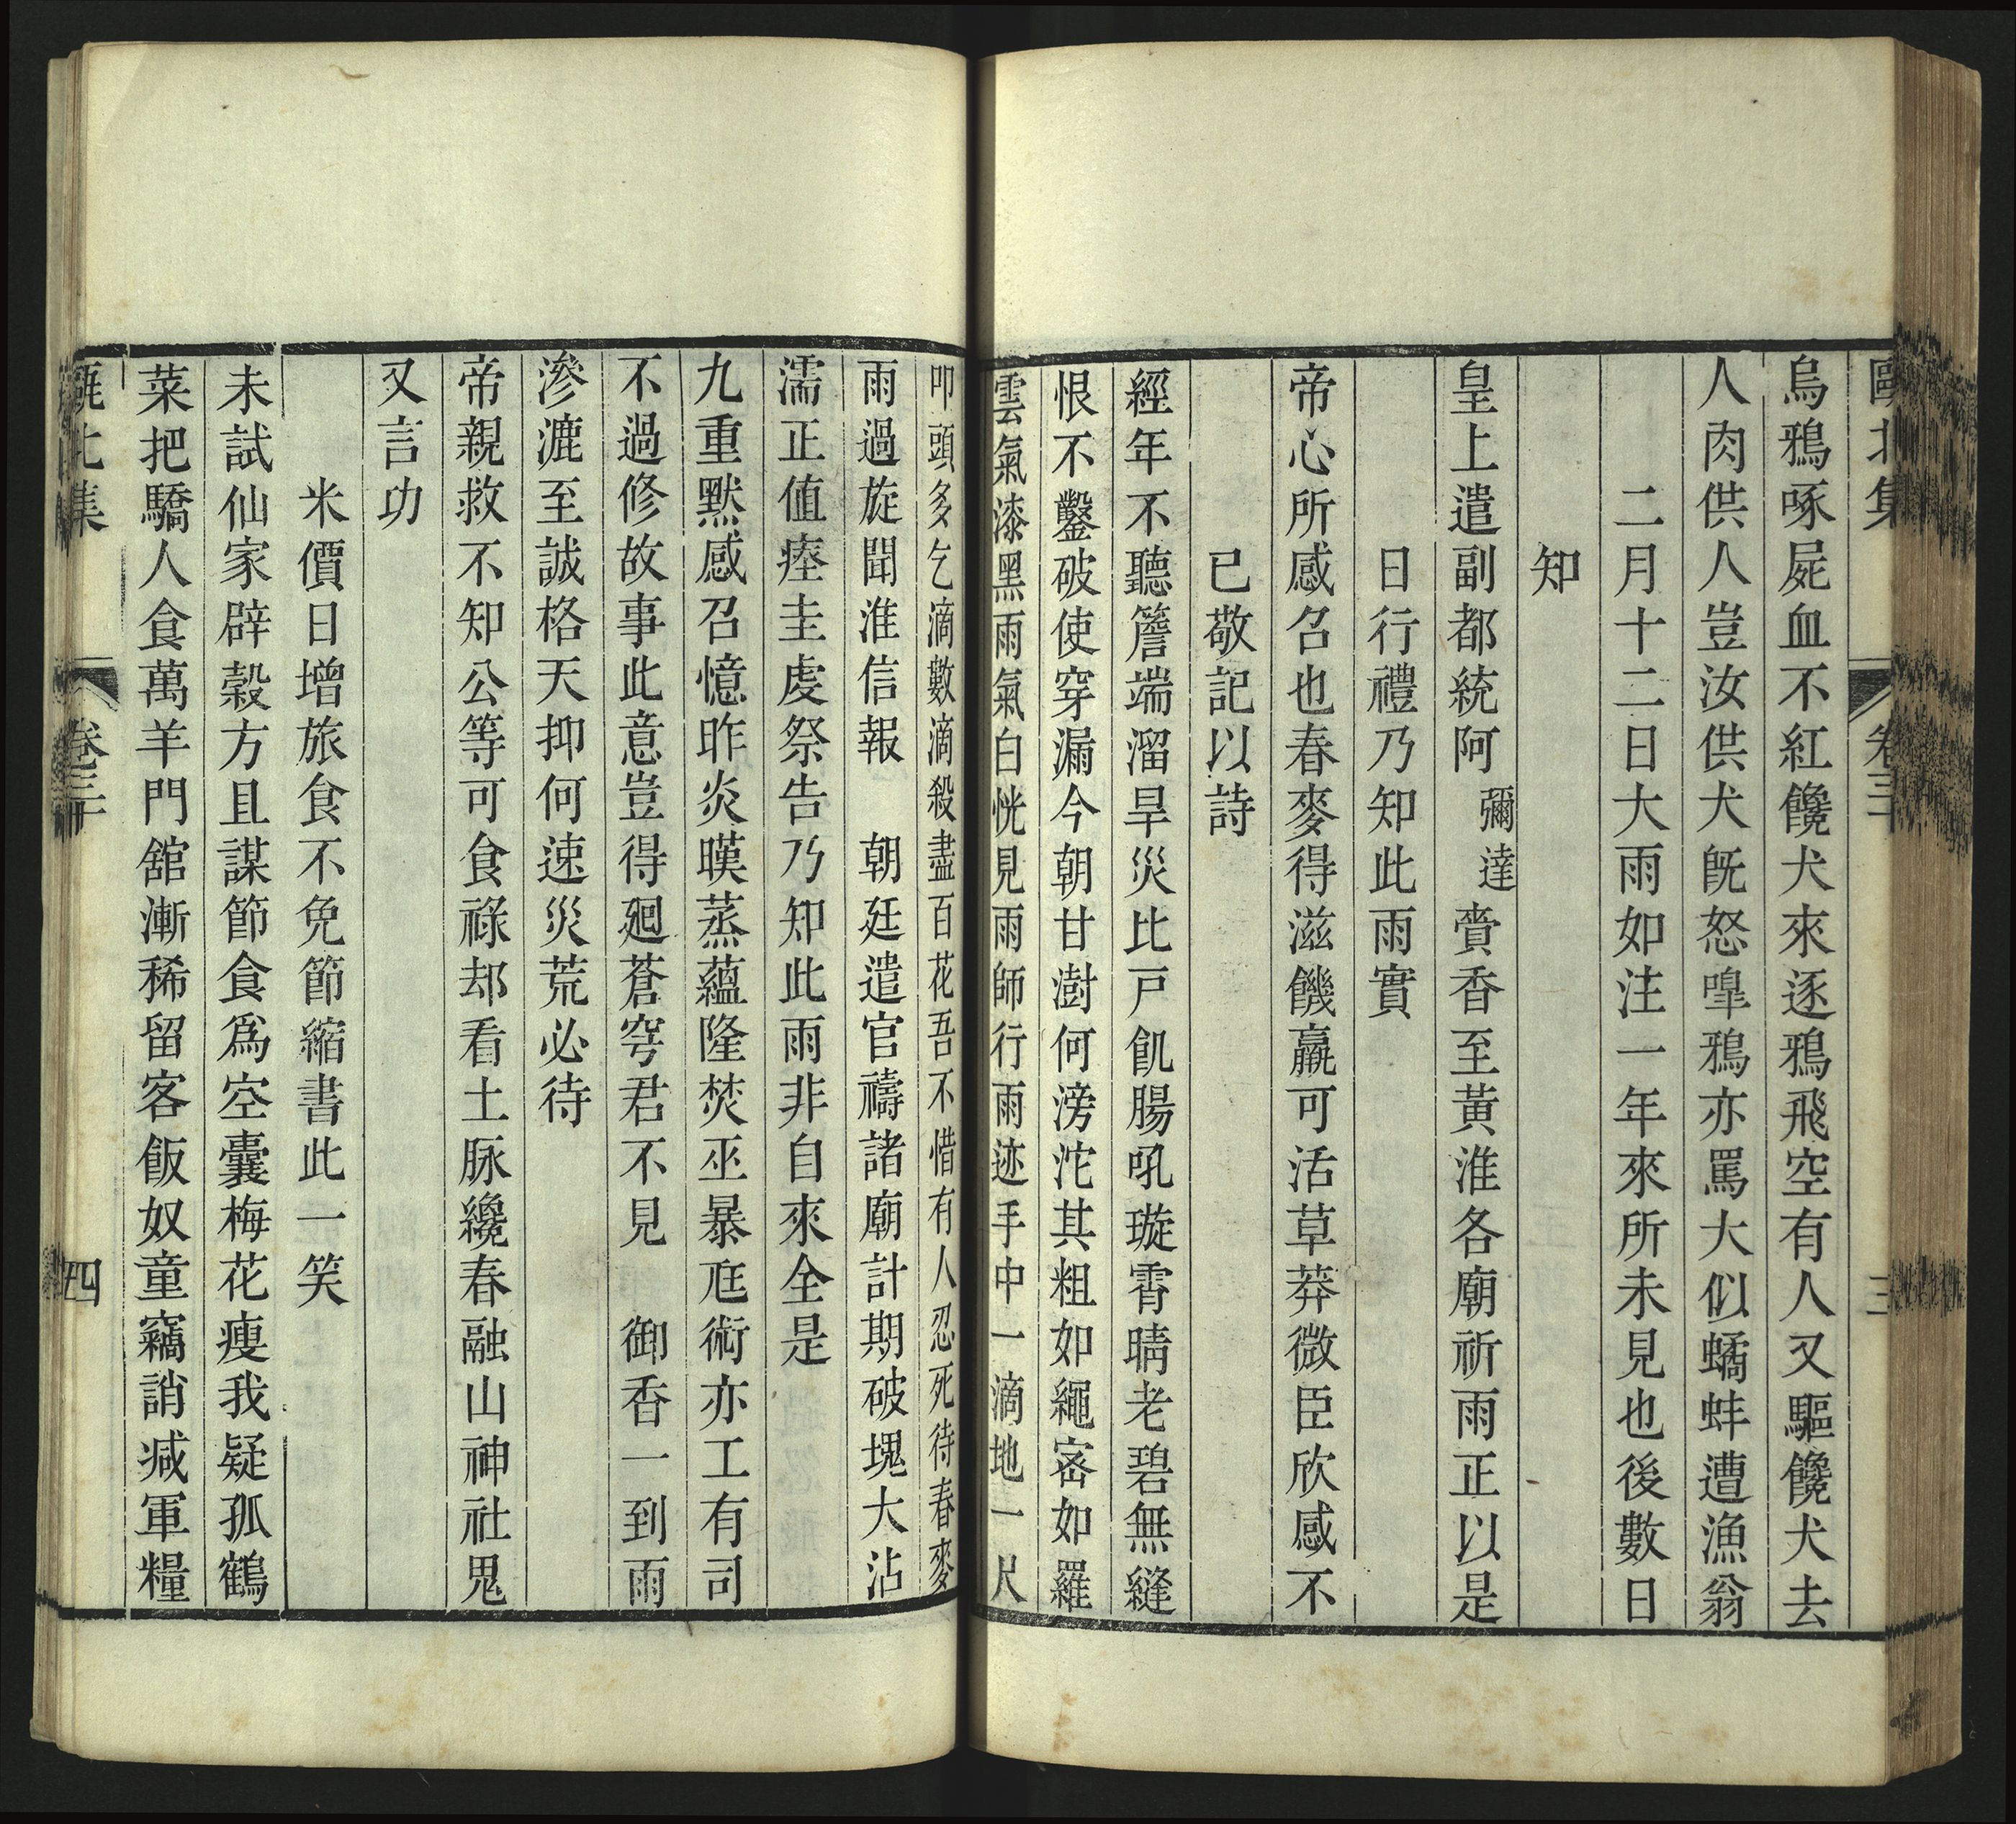 甌北集 卷三十 三
烏鴉啄屍血不紅饞犬來逐鴉飛空有人又驅饞犬去
人肉供人豈汝供犬旣怒嘷鴉亦罵大似蟠蚌遭漁翁
二月十二日大雨如注一年來所未見也後數日
知
皇上遣副都統阿彌達賫香至黃淮各廟祈雨正以是
日行禮乃知此雨實
帝心所感召也春麥得滋饑羸可活草莽微臣欣感不
已敬記以詩
經年不聽簷端溜旱災比戸飢腸吼璇霄晴老碧無縫
恨不鑿破使穿漏今朝甘澍何滂沱其粗如繩密如羅
雲氣漆黑雨氣白恍見雨師行雨迹手中一滴地一尺
叩頭多乞滴數滴殺盡百花吾不惜有人忍死待春麥
雨過旋聞淮信報 朝廷遣官禱諸廟計期破塊大沾
濡正值瘞圭虔祭告乃知此雨非自來全是
九重默感召憶昨炎暵蒸蘊隆焚巫暴尫術亦工有司
不過修故事此意豈得廻蒼穹君不見 御香一到雨
滲漉至誠格天抑何速災荒必待
帝親救不知公等可食祿却看土脈纔春融山神社鬼
又言功
米價日增旅食不免節縮書此一笑
未試仙家辟穀方且謀節食爲空囊梅花瘦我疑孤鶴
菜把驕人食萬羊門舘漸稀留客飯奴童竊誚减軍糧
甌北集 卷三十 四